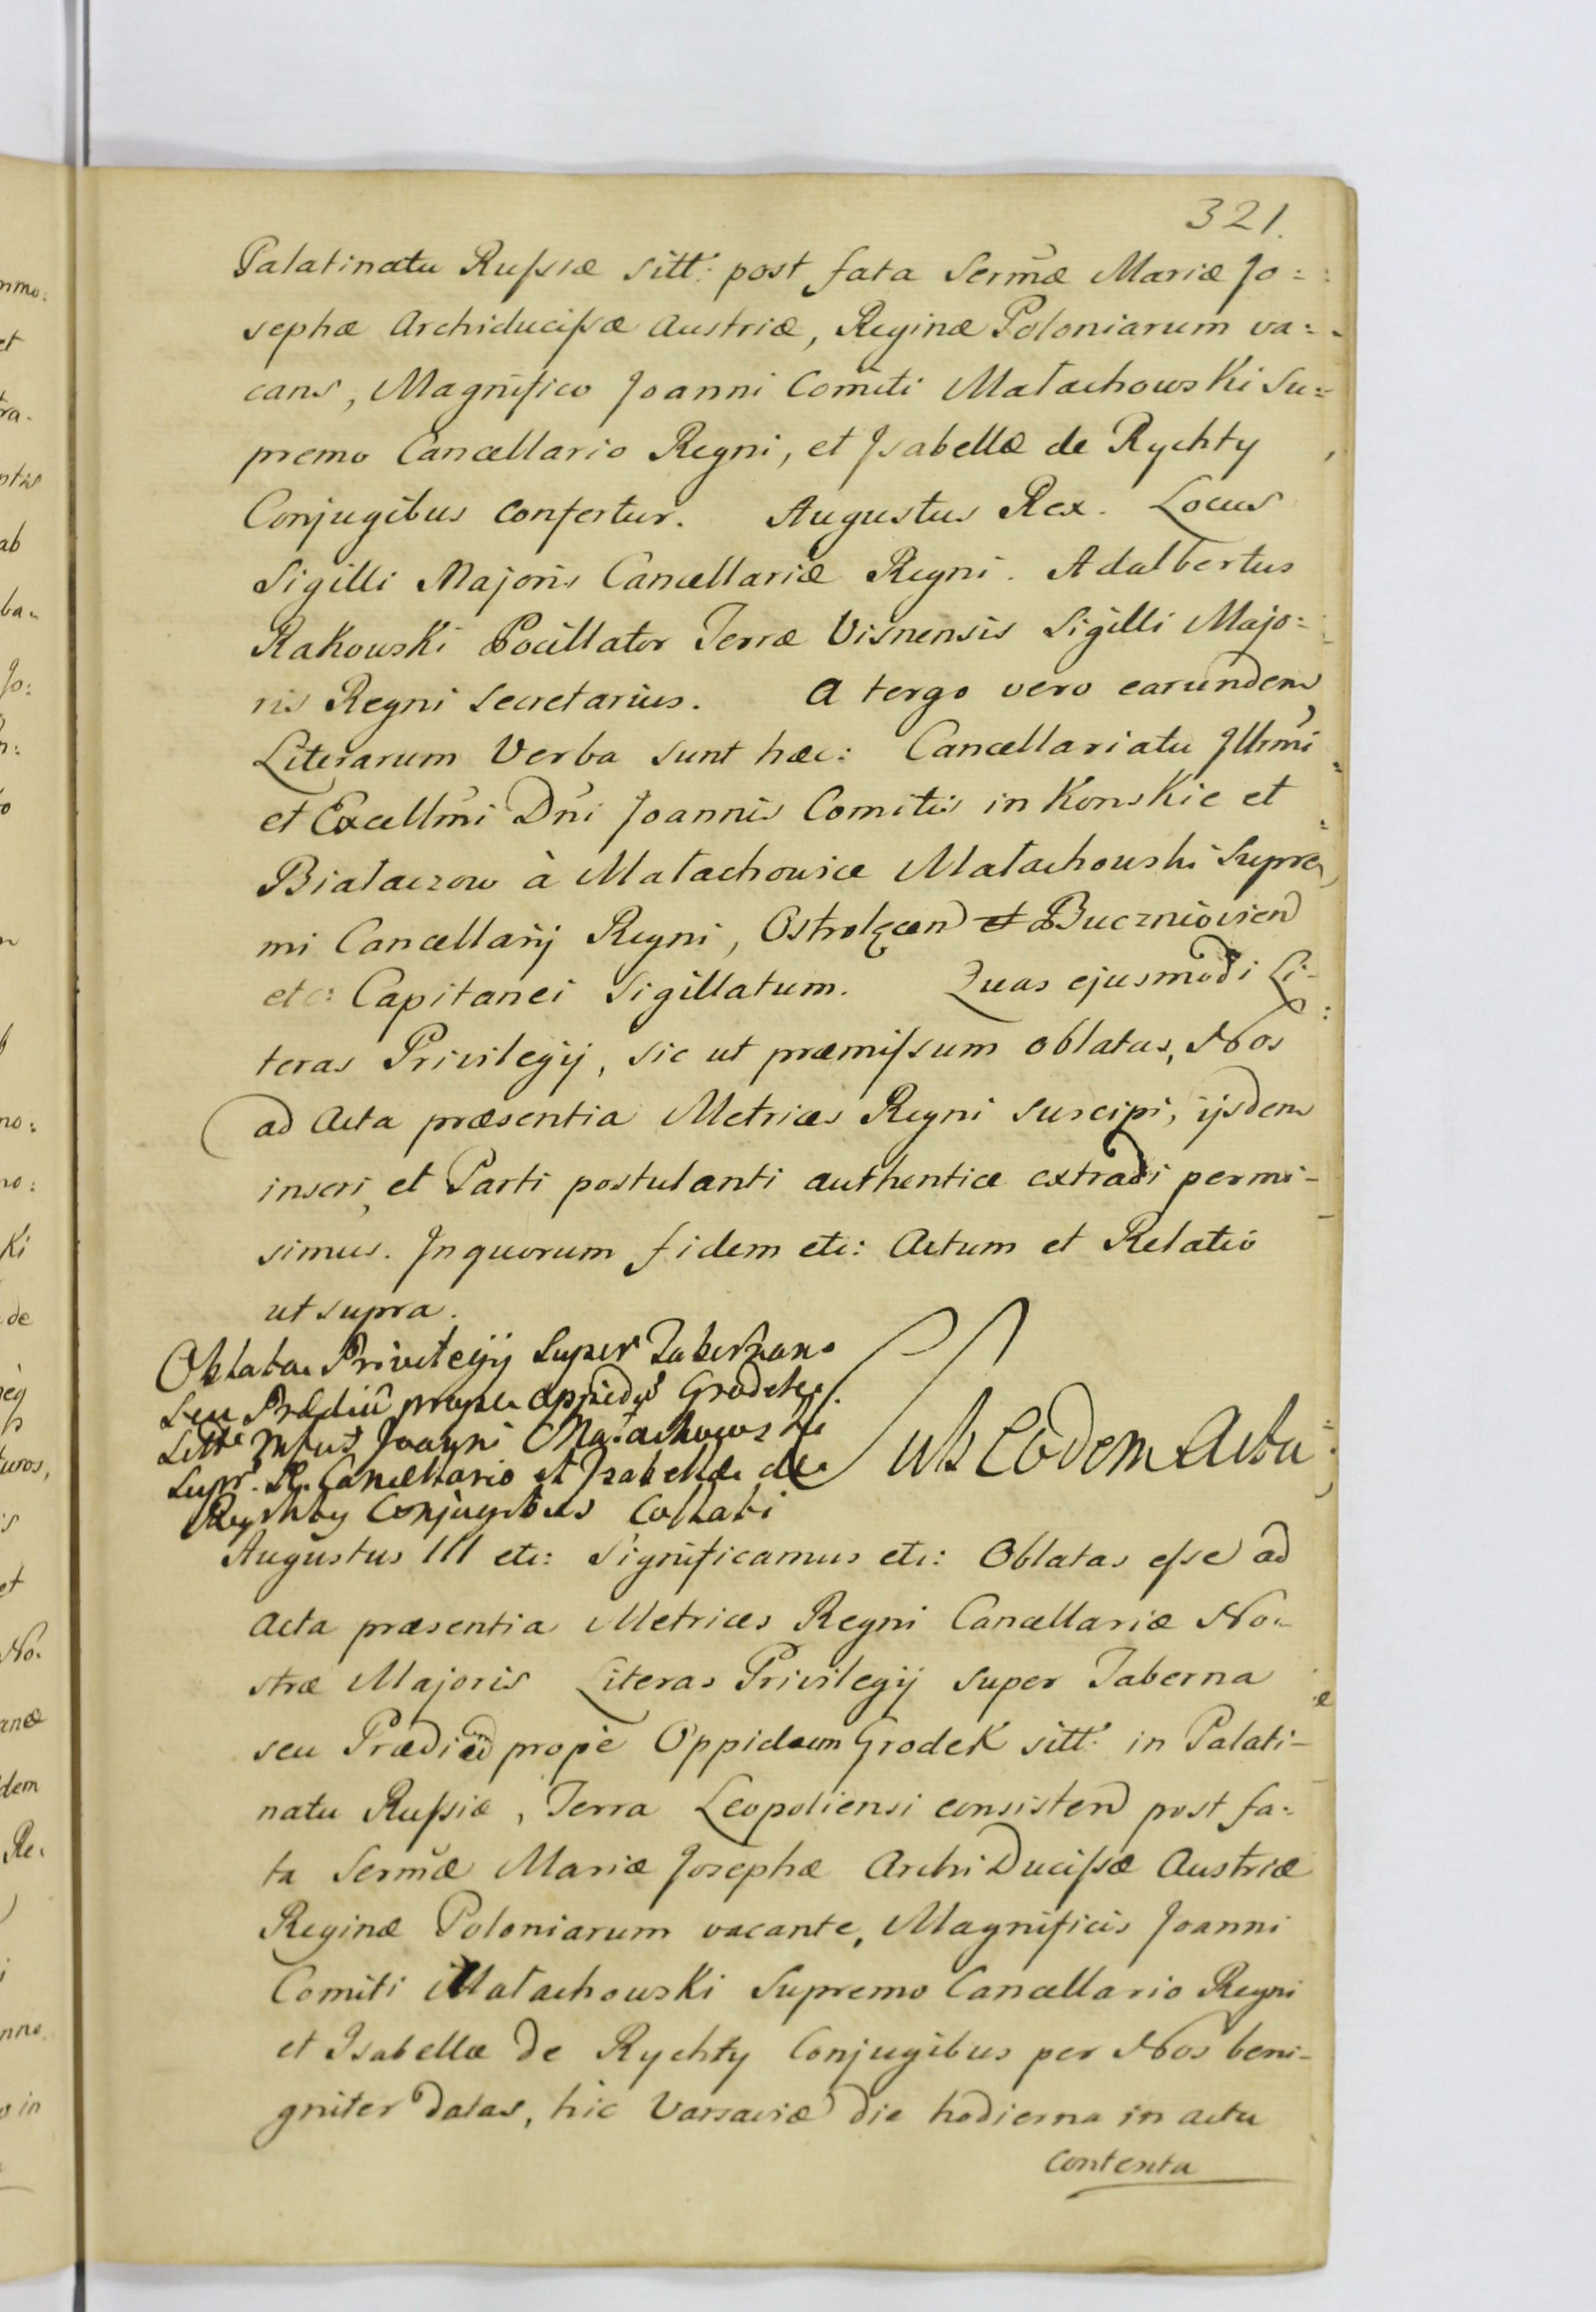 321.
Palatinatu Russiæ sitt: post fata Sermæ Mariæ Jo=
sephæ Archiducissæ Austriæ, Reginæ Poloniarum va=
cans, Magnifico Joanni Comiti Małachowski Su=
premo Cancellario Regni, et Isabellæ de Rychty
Conjugibus confertur. Augustus Rex. Locus
Sigilli Majoris Cancellariæ Regni. Adalbertus
Rakowski Pocillator Terræ Visnensis Sigilli Majo=
ris Regni Secretarius. A tergo vero earundem
Literarum Verba sunt hæc: Cancellariatu Illrmi
et Excellmi Dni Joannis Comitis in Konskie et
Białaczow à Małachowice Małachowski Supre
mi Cancellarij Regni, Ostrolęcen et Buczniovien
etc: Capitanei Sigillatum. Quas ejusmodi Li-
teras Privilegij, sic ut præmissum oblatas, Nos
ad Acta præsentia Metrices Regni suscipi, ijsdem
inseri, et Parti postulanti authentice extradi permi-
simus. In quorum fidem etc: Actum et Relatio
ut supra.
Oblata Privilegij Super Tabernam
seu Prædiũ prope oppidũ Grodek
sitt: Joanni Małachowski
Supr. R. Cancellario et Isabellæ de
Rychty Conjugibus Collati
Sub Eodem Actu
Augustus III etc: Significamus etc: Oblatas esse ad
Acta præsentia Metrices Regni Cancellariæ No-
stræ Majoris Literas Privilegij super Taberna
seu Prædiũ prope Oppidum Grodek sitt: in Palati-
natu Russiæ, Terra Leopoliensi consisten post fa-
ta Sermæ Mariæ Josephæ ArchiDucissæ Austriæ
Reginæ Poloniarum vacante, Magnificis Joanni
Comiti Małachowski Supremo Cancellario Regni
et Isabellæ de Rychty Conjugibus per Nos beni-
gniter datas, hic Varsaviæ die hodierna in actu
contenta